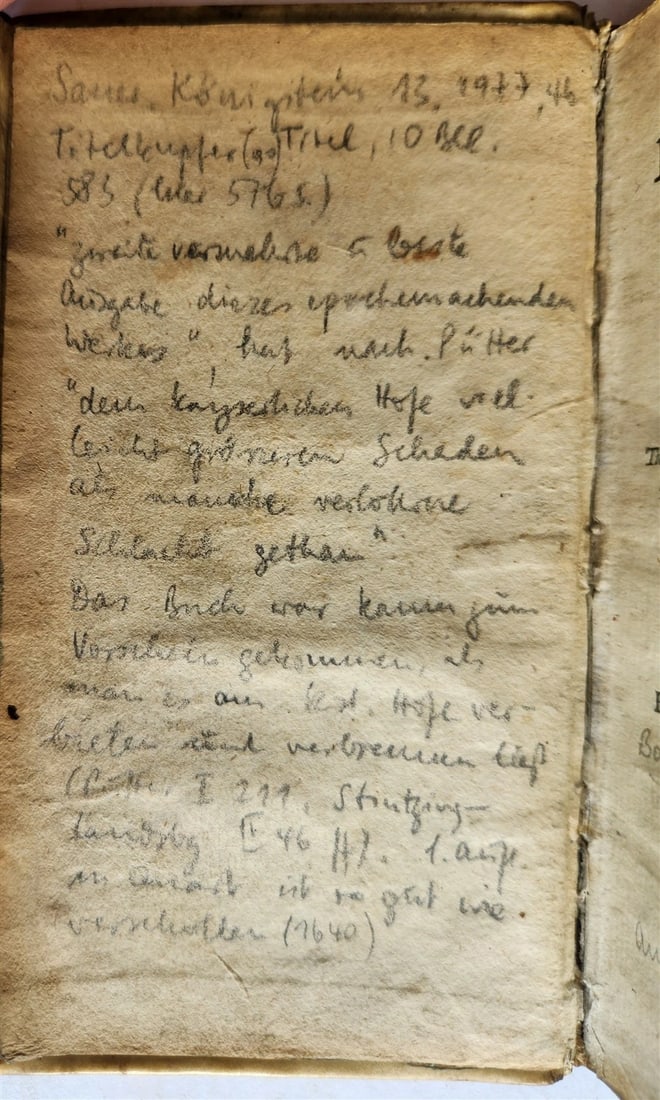 Sauer, Königstein, 13, 1977, 46
Titelkupfer (gr) Titel, 10 Bll.
583 (hier 576 S.)
"zweite vermehrte u beste
Ausgabe dieses epochemachenden
Werkes" hat nach Pütter
"dem kayserlichen Hofe viel-
leicht grösseren Schaden
als manche verlohrne
Schlacht gethan".
Das Buch war kaum zum
Vorschein gekommen, als
man es am Hofe ver-
bieten und verbrennen ließ
(Pütter I 211, Stintzing-
Landsbg II 46 ff). 1. Aufl.
in Quart ist so gut wie
verschollen (1640)